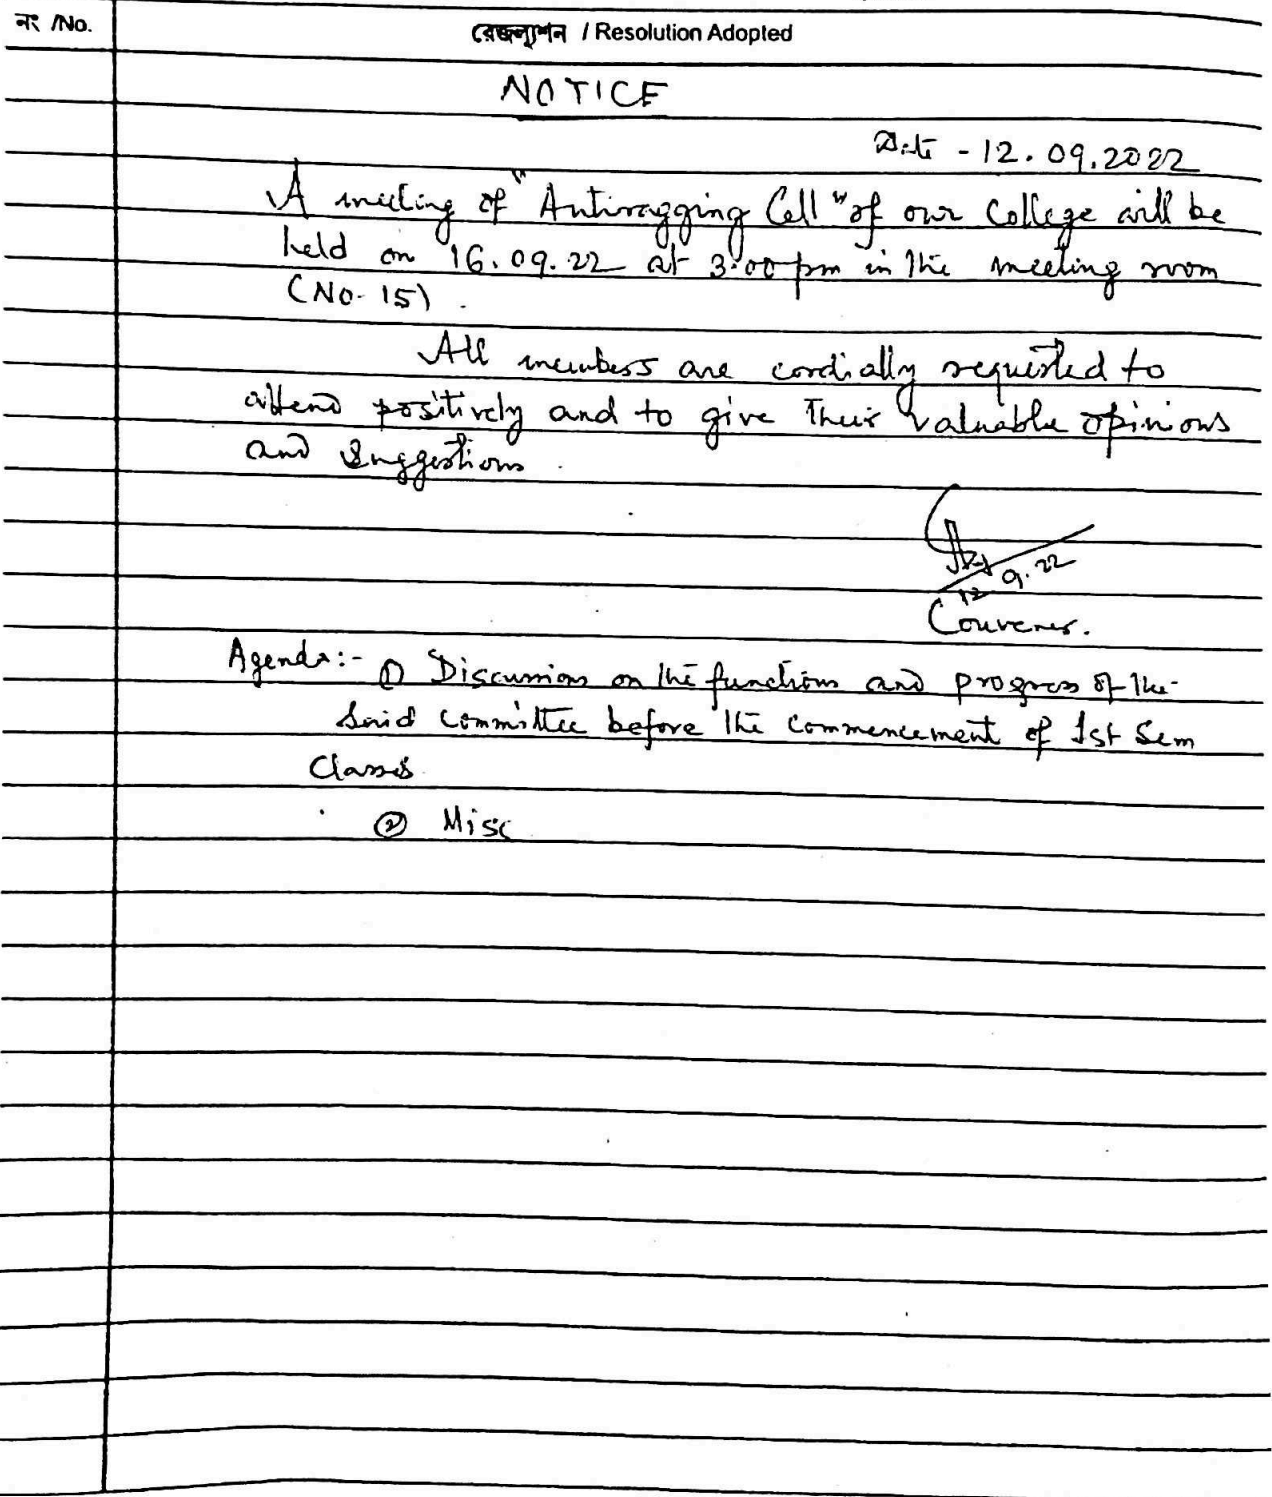 নং /No.
রেজল্যুশন / Resolution Adopted
NOTICE
Date - 12.09.2022
A meeting of "Antiragging Cell" of our College will be
held on 16.09.22 at 3:00 pm in the meeting room
(No- 15) .
All members are cordially requested to
attend positively and to give their valuable opinions
and suggestions .
12.9.22
Convener.
Agenda:- ① Discussion on the functions and progress of the
said committee before the commencement of 1st Sem
Classes
② Misc